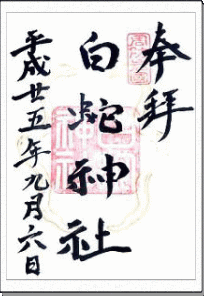 奉拝
白蛇神社
平成廿五年九月六日